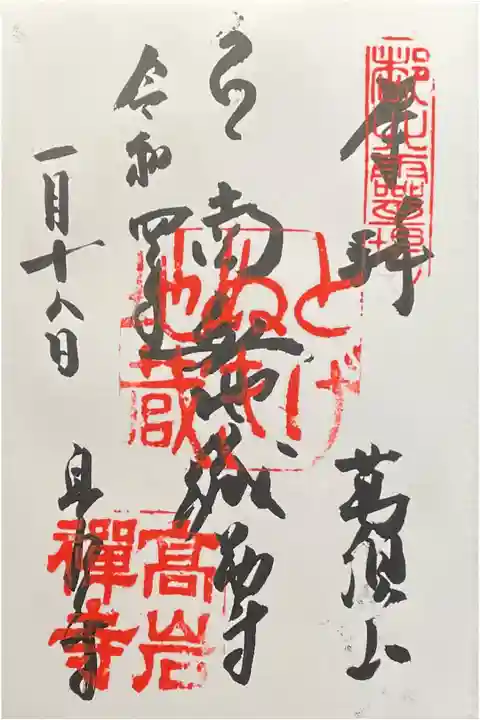 奉拝
萬頂山
南無地蔵尊
令和四年
一月十八日
高岩寺
とげ
ぬき
地蔵
髙岩
禪寺